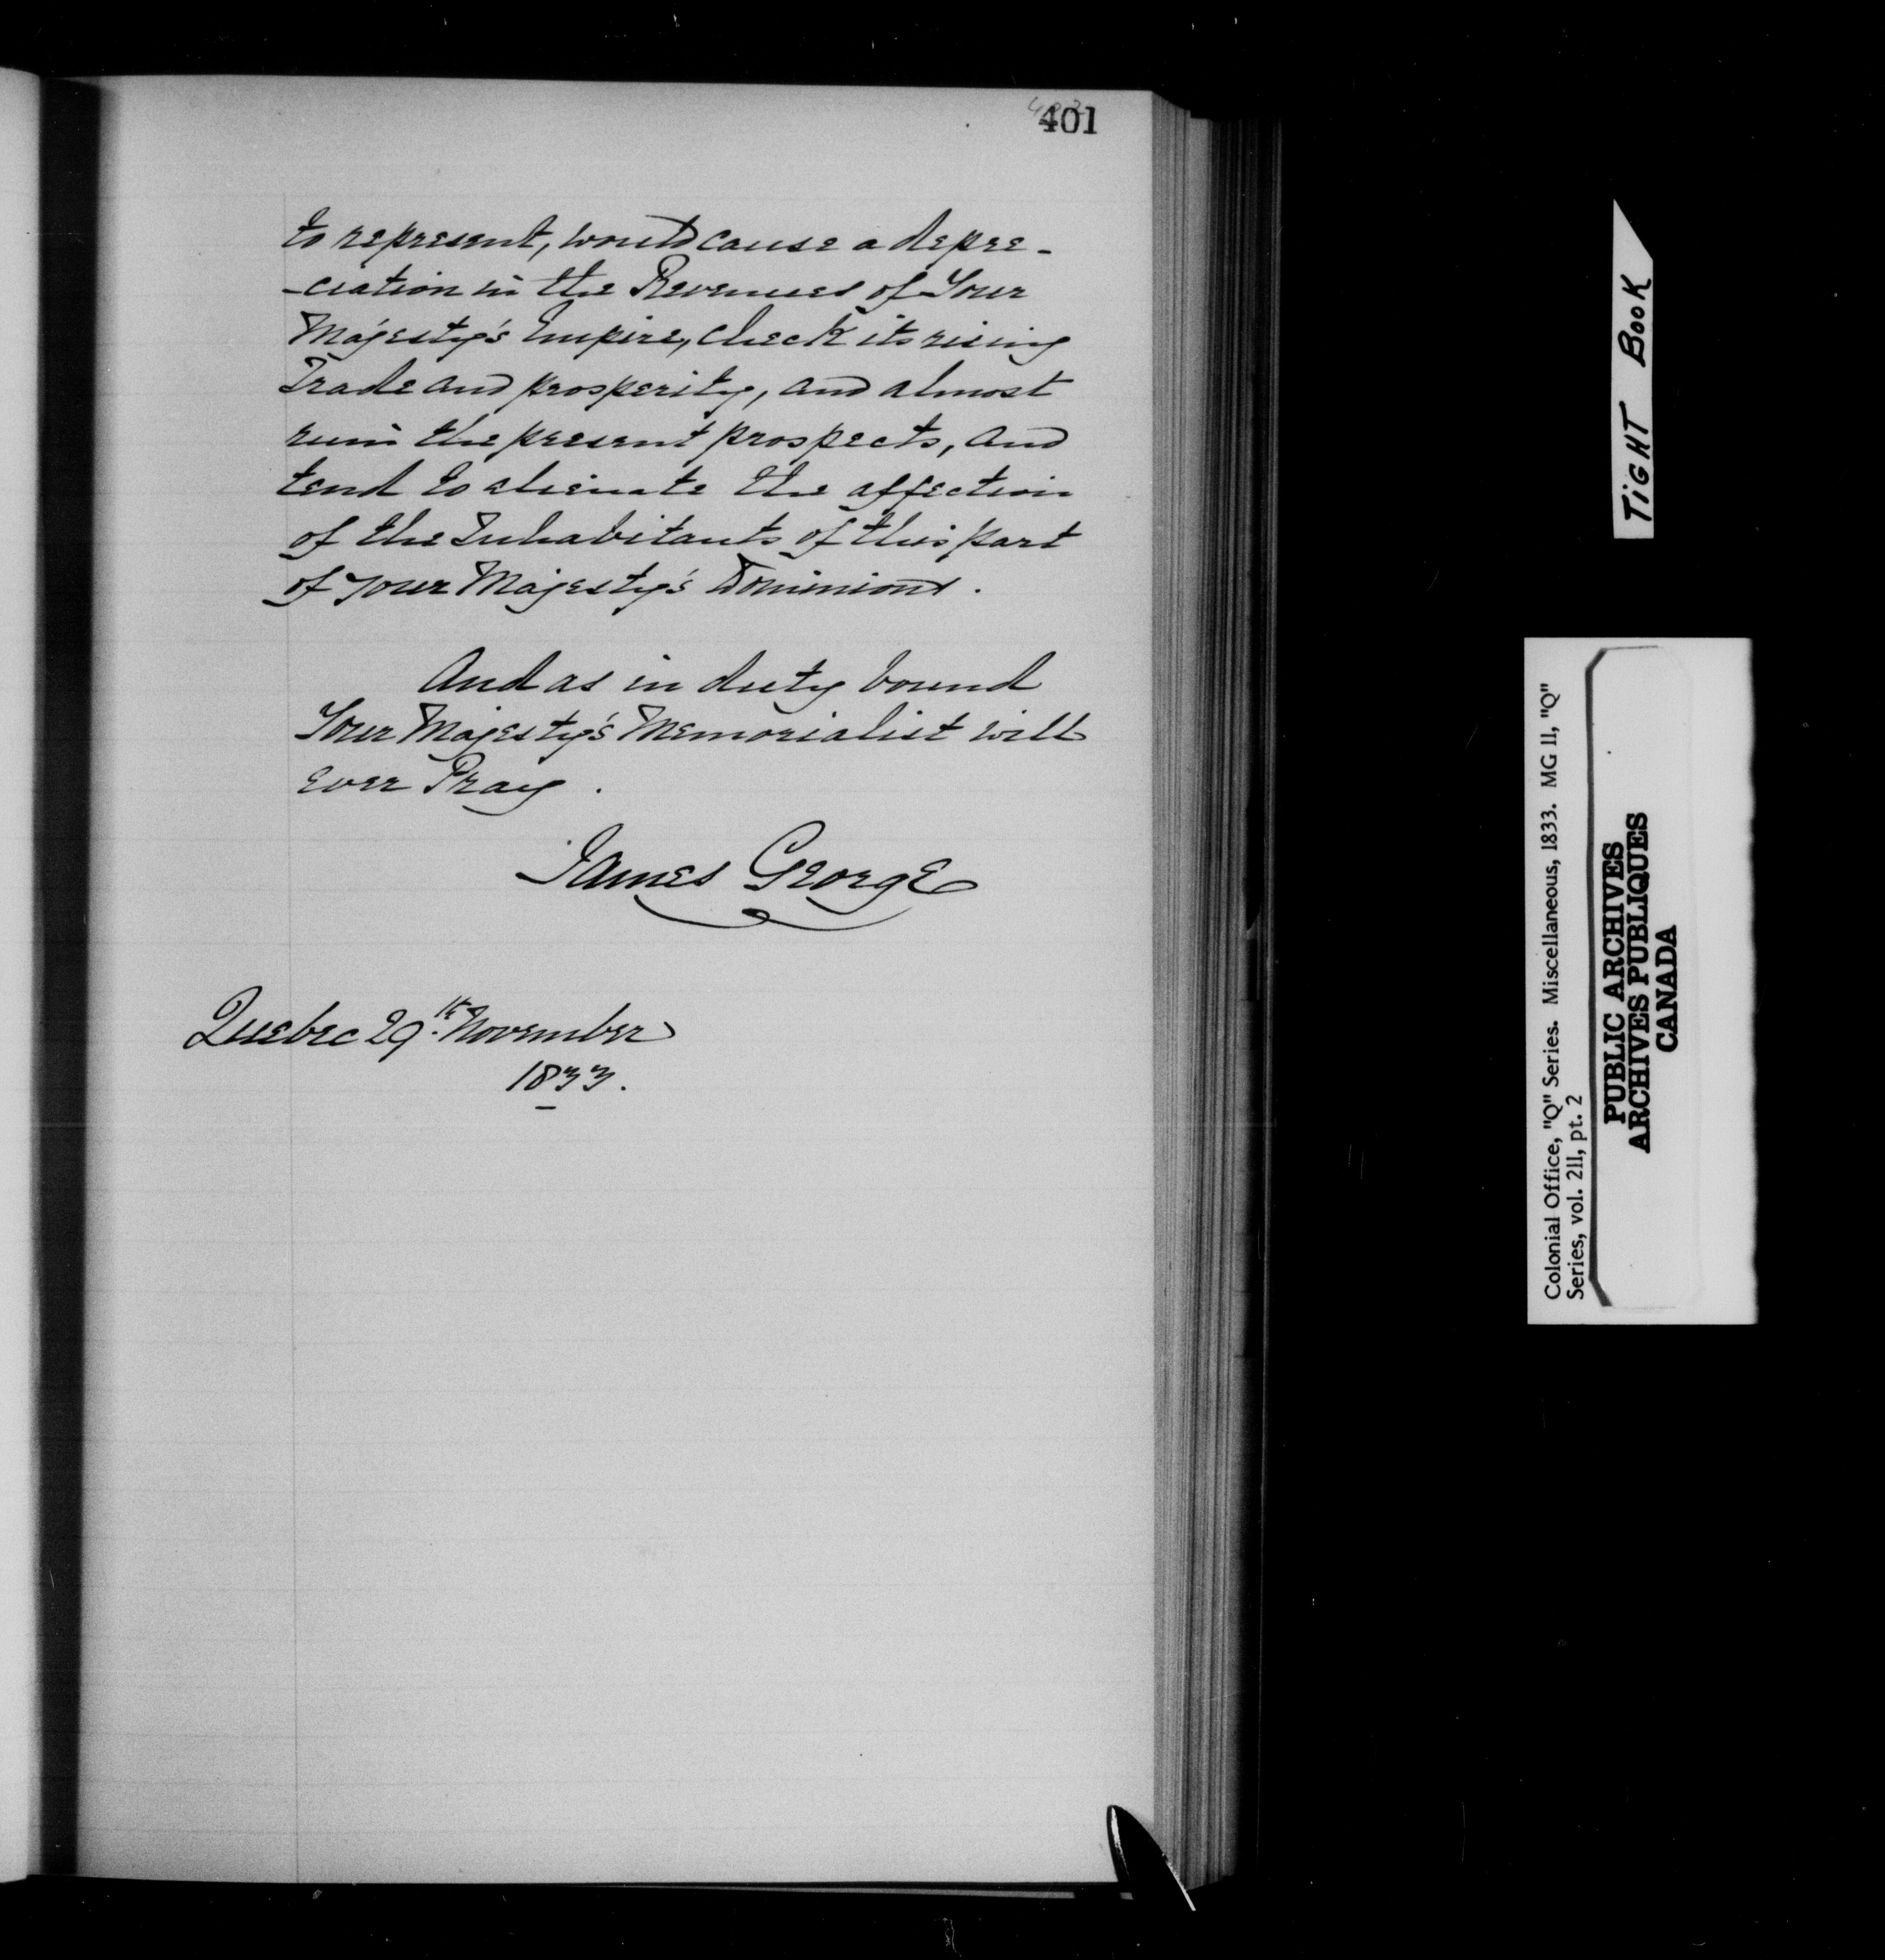 401
to represent, would cause a depre-
-ciation in the Revenues of Your
Majesty's Empire, check its rising
Trade and prosperity, and almost
ruin the present prospects, and
tend to alienate the affection
of the Inhabitants of this part
of your Majesty's Dominions.
And as in duty bound
Your Majesty's Memorialist will
ever Pray.
James George
Quebec 29th November
1833.
TiGHT BOOK
Colonial Office, "Q" Series. Miscellaneous, 1833. MG 11, "Q"
Series, vol. 211, pt. 2
PUBLIC ARCHIVES
ARCHIVES PUBLIQUES
CANADA